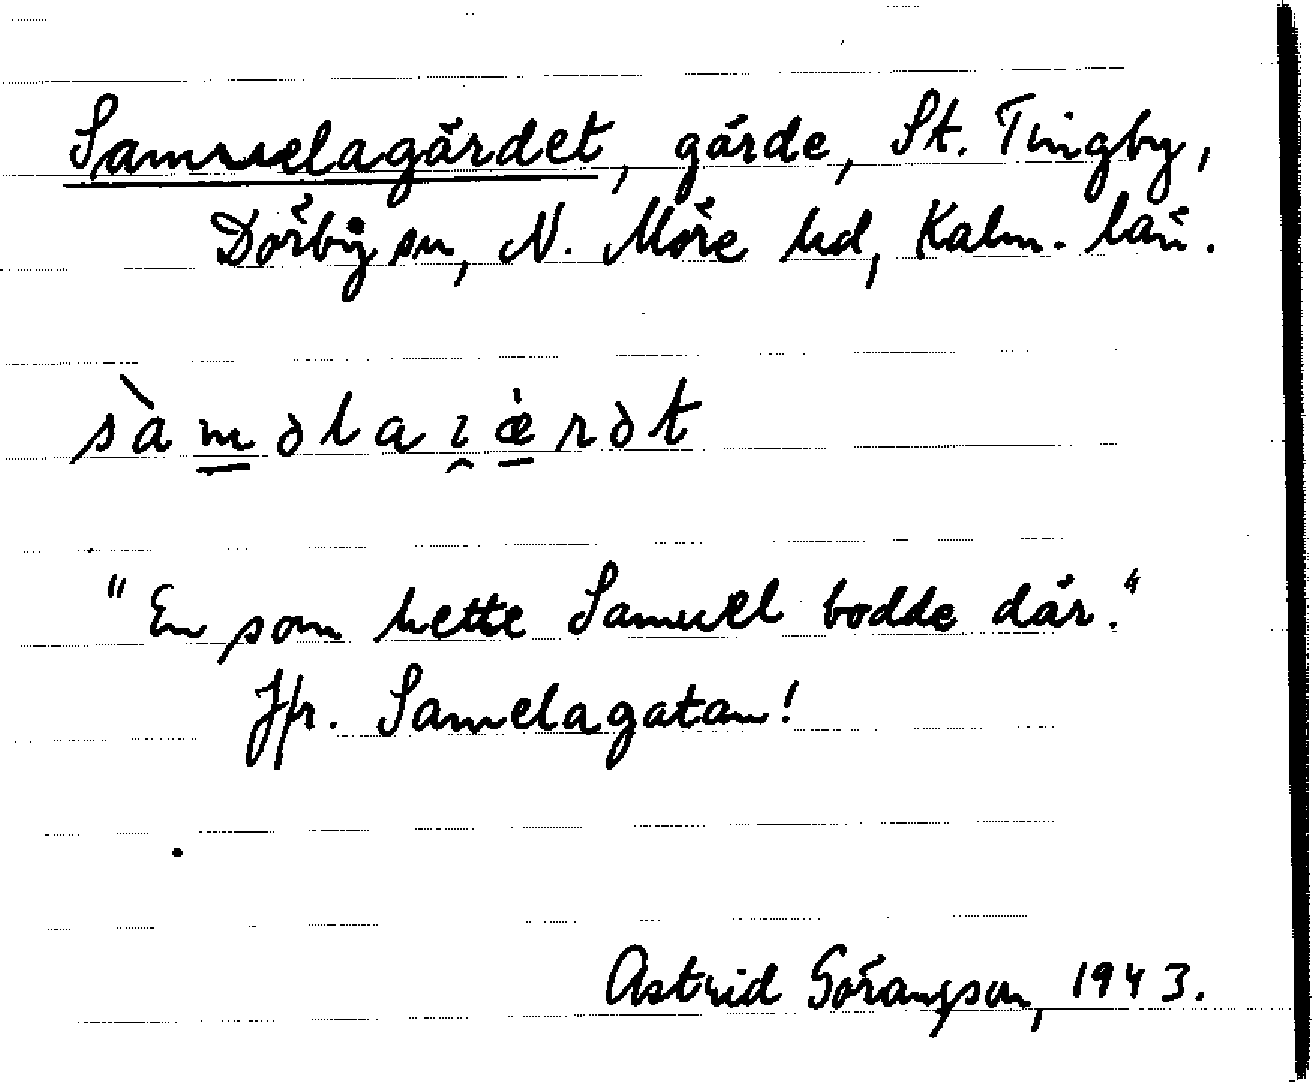 Samuelagärdet, gärde, St. Tingby,
Dörby sn, N. Möre hd, Kalm. län.
sàməlaɪæ̀rdət
"En som hette Samuel bodde där."
Jfr. Samelagatan!
Astrid Görangson, 1943.